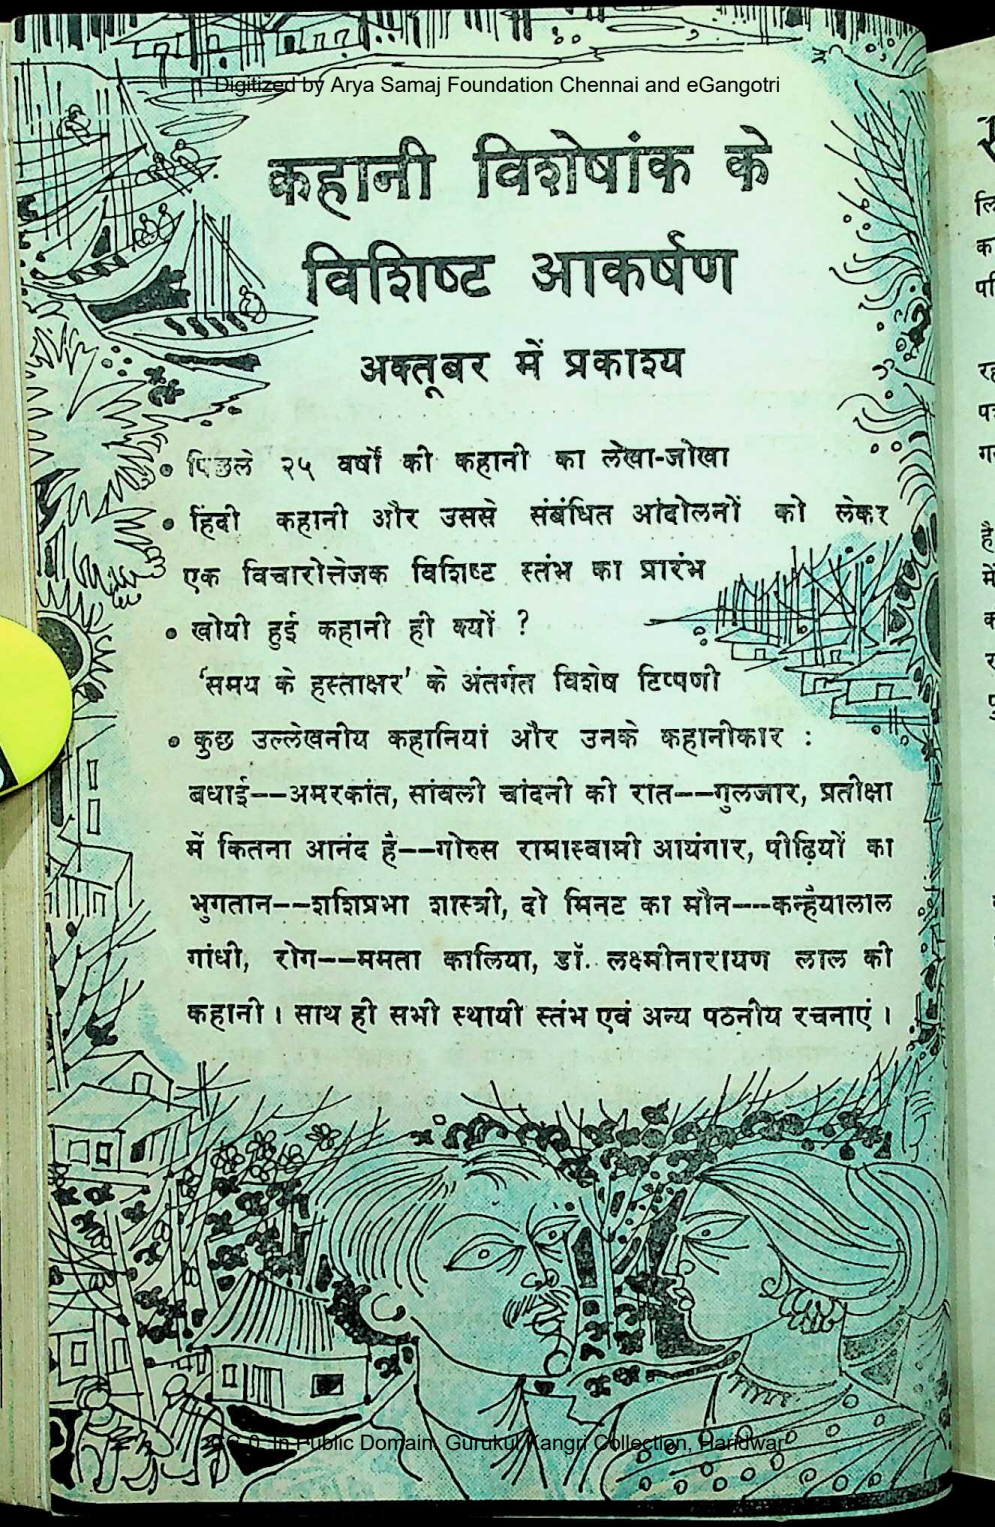 Digitized by Arya Samaj Foundation Chennai and eGangotri
कहानी विशेषांक के
विशिष्ट आकर्षण
अक्तूबर में प्रकाश्य
• पिछले २५ वर्षों की कहानी का लेखा-जोखा
• हिंदी कहानी और उससे संबंधित आंदोलनों को लेकर
एक विचारोत्तेजक विशिष्ट स्तंभ का प्रारंभ
• खोयी हुई कहानी ही क्यों ?
‘समय के हस्ताक्षर’ के अंतर्गत विशेष टिप्पणी
• कुछ उल्लेखनीय कहानियां और उनके कहानीकार :
बधाई--अमरकांत, सांवली चांदनी की रात--गुलजार, प्रतीक्षा
में कितना आनंद है--गोरुस रामास्वामी आयंगार, पीढ़ियों का
भुगतान--शशिप्रभा शास्त्री, दो मिनट का मौन--कन्हैयालाल
गांधी, रोग--ममता कालिया, डॉ. लक्ष्मीनारायण लाल की
कहानी । साथ ही सभी स्थायी स्तंभ एवं अन्य पठनीय रचनाएं ।
CC-0. In Public Domain. Gurukul Kangri Collection, Haridwar